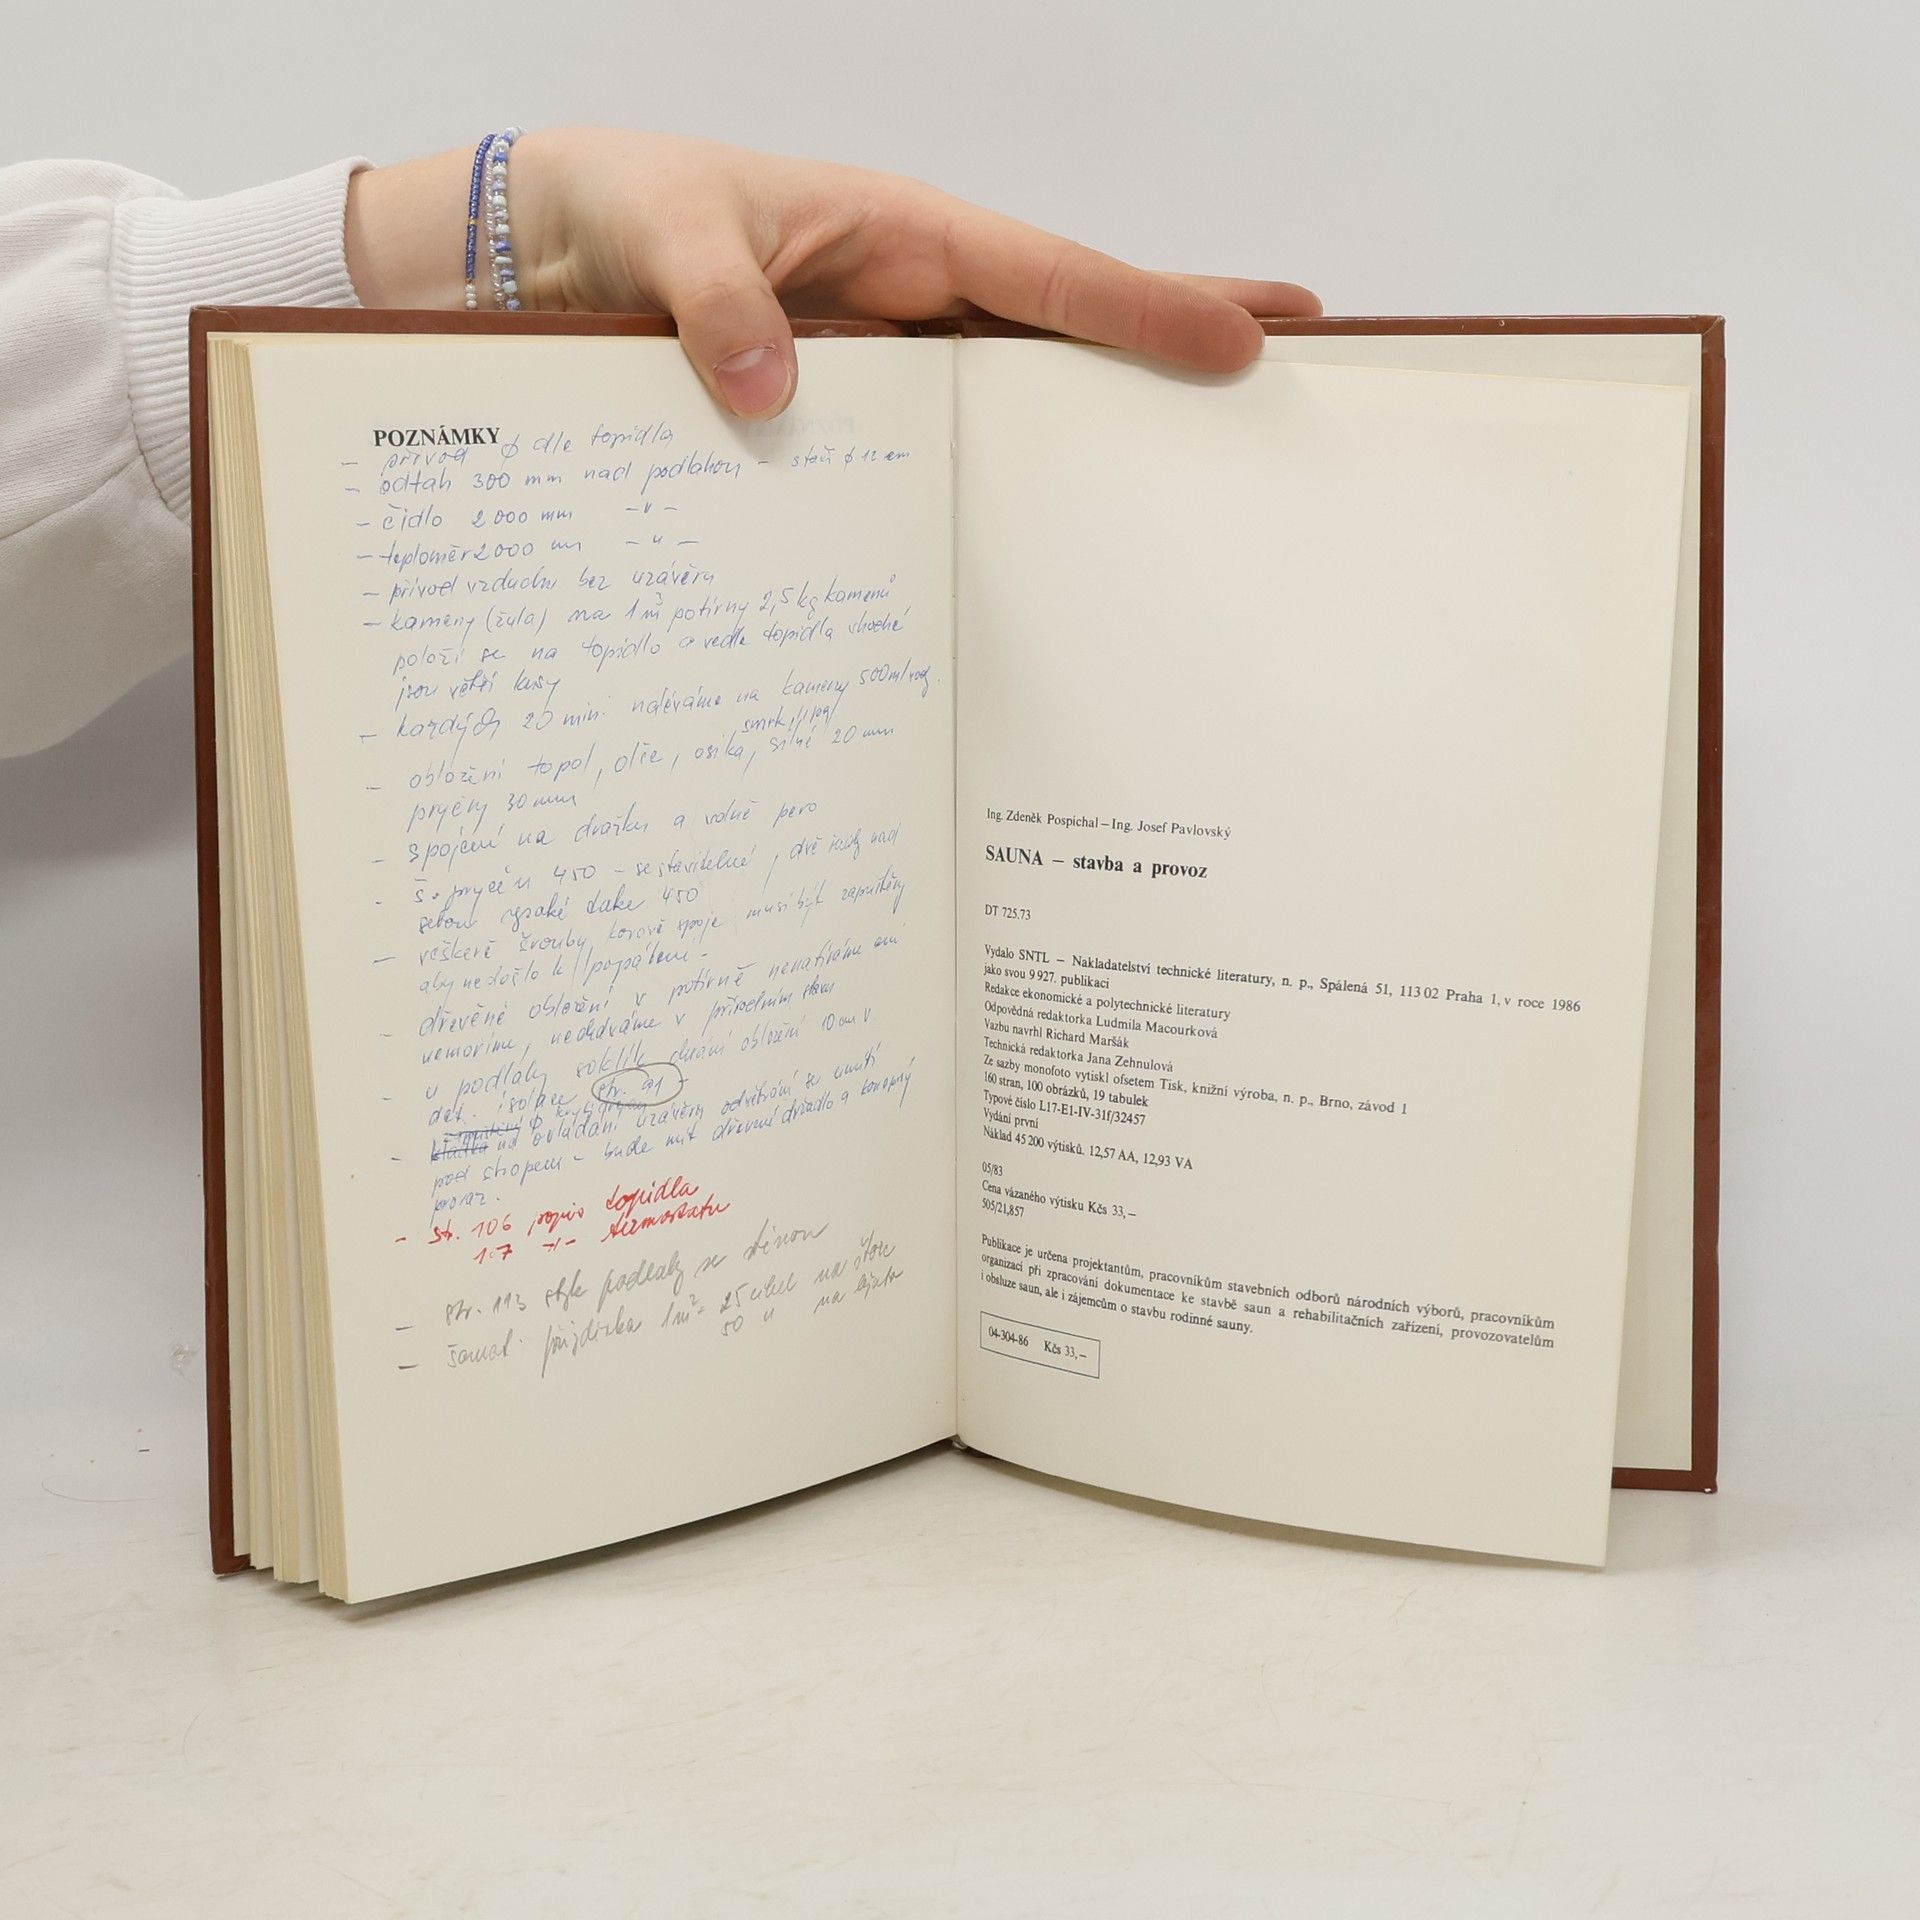 POZNÁMKY
- přívod ϕ dle topidla
- odtah 300 mm nad podlahou - stačí ϕ 12 cm
- čidlo 2000 mm -"-
- teploměr 2000 mm -"-
- přívod vzduchu bez uzávěru
- kameny (žula) na 1 m³ potírny 2,5 kg kamenů
položí se na topidlo a vedle topidla vhodné
jsou větší kusy
- každých 20 min. naléváme na kameny 500 ml vody.
smrk, lípa
- obložení topol, olše, osika, silné 20 mm
pryčny 30 mm
- spojení na drážku a volné pero
- š. pryčen 450 - sestavitelné, dvě řady nad
sebou vysoké také 450
- veškeré šrouby, kovové spoje musí být zapuštěny
aby nedošlo k popálení.
- dřevěné obložení v potírně nenatíráme ani
nemoříme, necháváme v přírodním stavu
- u podlahy soklík chrání obložení 10 cm v.
det. izolace str. 91 -
- na ovládání uzávěru odvětrání se umístí
pod stropem - bude mít dřevěné držadlo a konopný
provaz.
- str. 106 popis topidla
107 -"- termostatu
- str. 113 styk podlahy se stěnou
- šamot. přizdívka 1 m² = 25 cihel na štorc
50 " na ležato
Ing. Zdeněk Pospíchal – Ing. Josef Pavlovský
SAUNA – stavba a provoz
DT 725.73
Vydalo SNTL – Nakladatelství technické literatury, n. p., Spálená 51, 113 02 Praha 1, v roce 1986
jako svou 9 927. publikaci
Redakce ekonomické a polytechnické literatury
Odpovědná redaktorka Ludmila Macourková
Vazbu navrhl Richard Maršák
Technická redaktorka Jana Zehnulová
Ze sazby monofoto vytiskl ofsetem Tisk, knižní výroba, n. p., Brno, závod 1
160 stran, 100 obrázků, 19 tabulek
Typové číslo L17-E1-IV-31f/32457
Vydání první
Náklad 45 200 výtisků. 12,57 AA, 12,93 VA
05/83
Cena vázaného výtisku Kčs 33,–
505/21,857
Publikace je určena projektantům, pracovníkům stavebních odborů národních výborů, pracovníkům
organizací při zpracování dokumentace ke stavbě saun a rehabilitačních zařízení, provozovatelům
i obsluze saun, ale i zájemcům o stavbu rodinné sauny.
04-304-86 Kčs 33,–